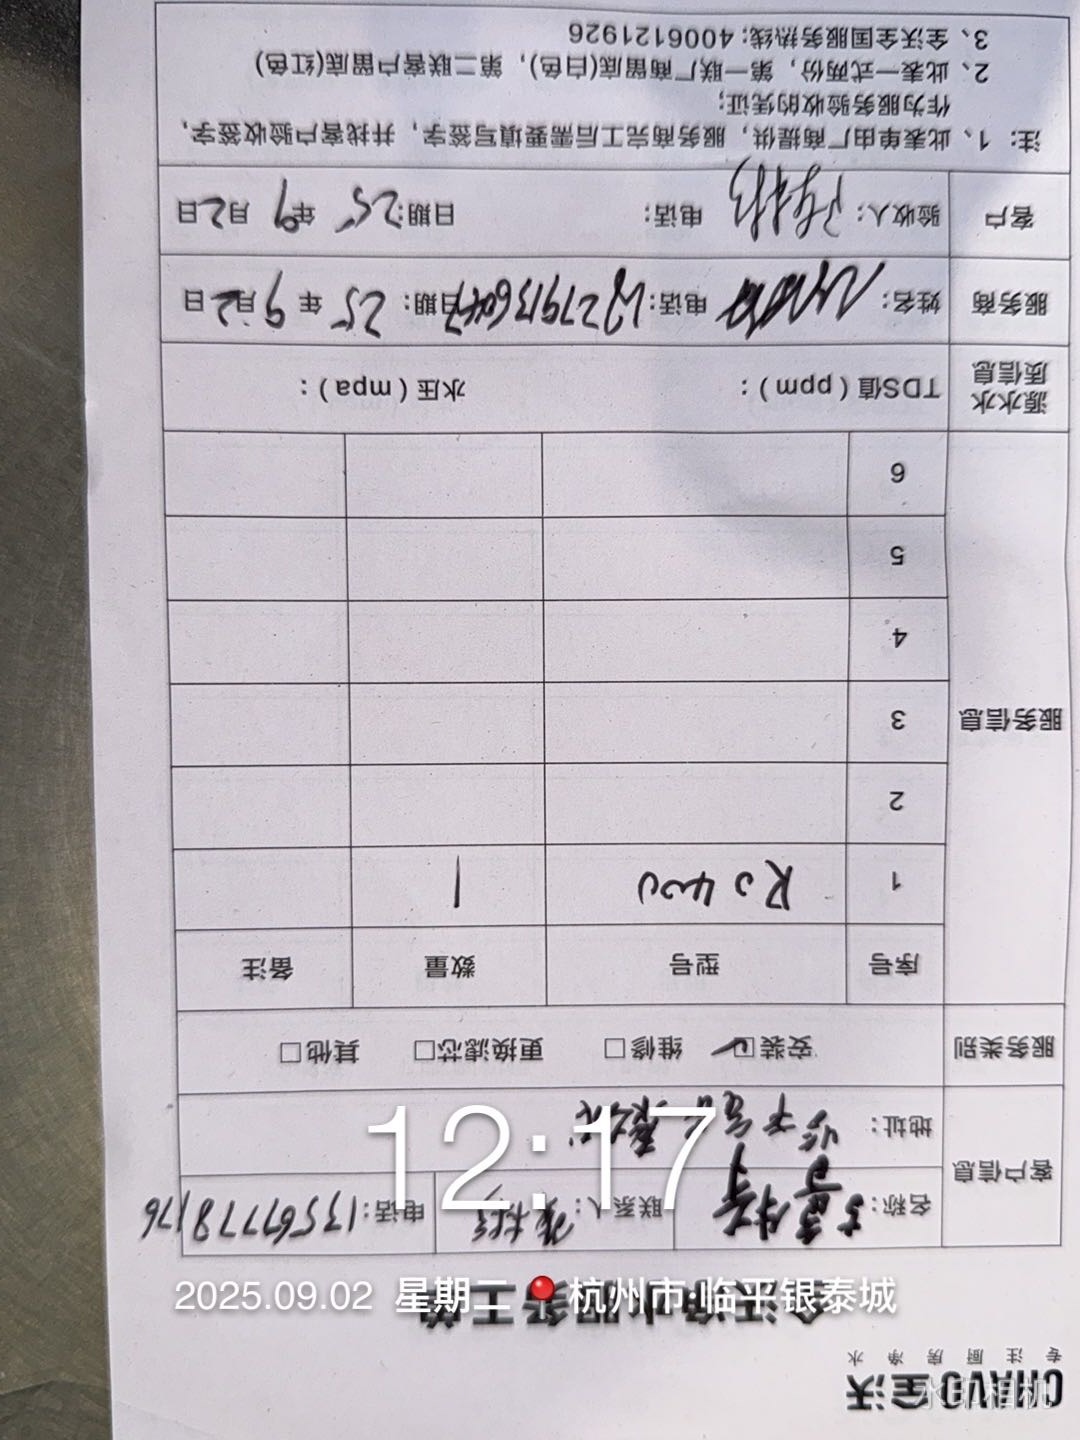 CHAVO 全沃
专注厨房净水
全沃净水服务工单
客户信息 名称: 联系人: 电话: 13567778176
地址:
服务类别 安装☑ 维修□ 更换滤芯□ 其他□
服务信息 序号 型号 数量 备注
1 Ro400 1
2
3
4
5
6
源水水质信息 TDS值(ppm): 水压(mpa):
服务商 姓名: 电话: 日期: 25年9月2日
客户 验收人: 电话: 日期: 25年9月2日
注: 1、此表单由厂商提供, 服务商完工后需要填写签字, 并找客户验收签字,
作为服务验收的凭证;
2、此表一式两份, 第一联厂商留底(白色), 第二联客户留底(红色)
3、全沃全国服务热线: 4006121926
12:17
2025.09.02 星期二 杭州市·临平银泰城
水印相机